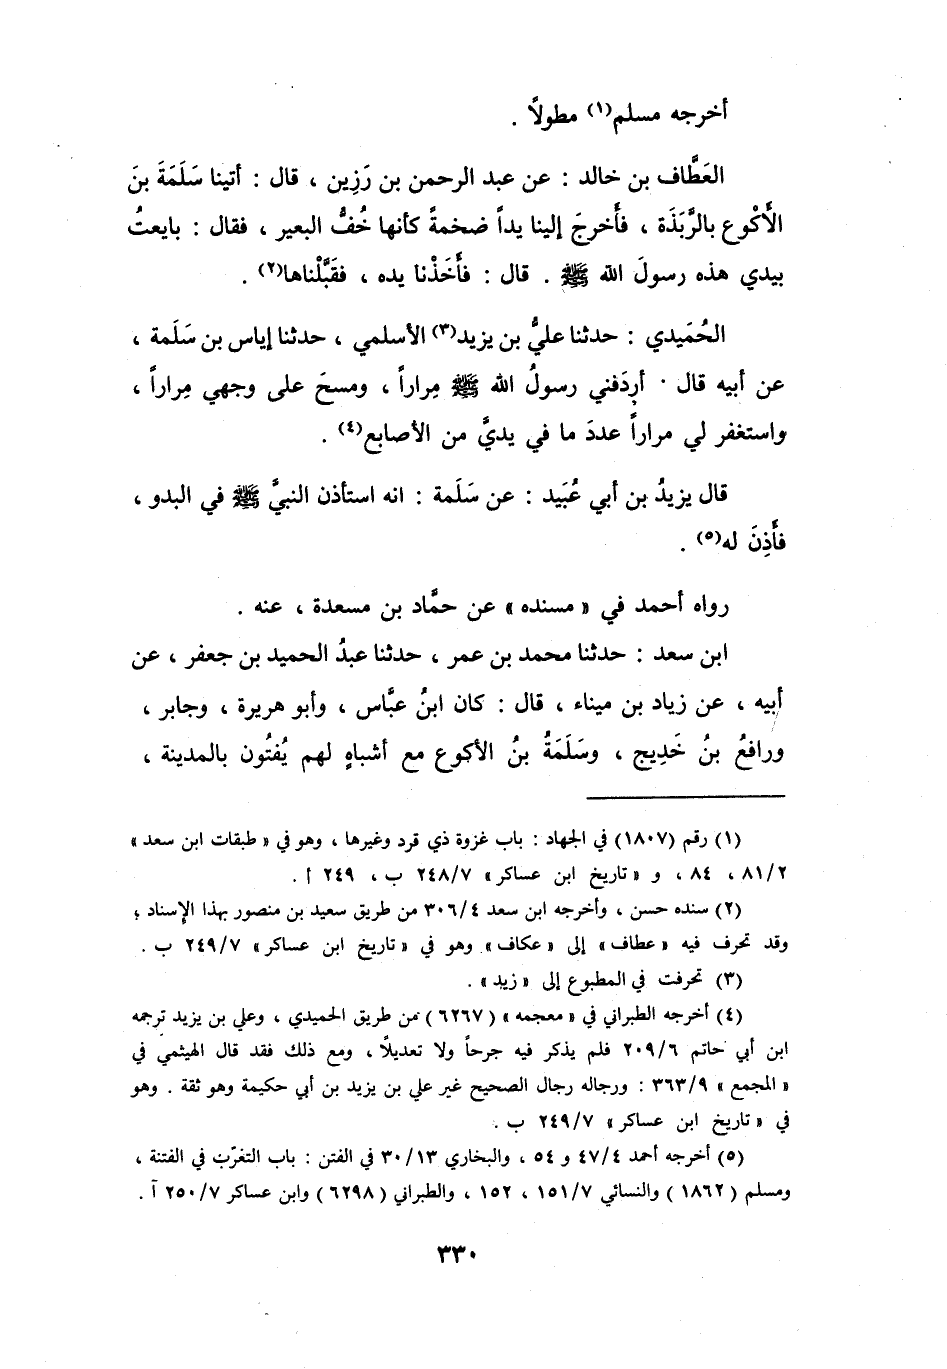 أخرجه مسلم(١) مطولاً .
العَطَّاف بن خالد : عن عبد الرحمن بن رَزِين ، قال : أتينا سَلَمَةَ بنَ
الأَكْوع بالرَّبَذَة ، فأَخرجَ إلينا يداً ضخمةً كأنها خُفُّ البعير ، فقال : بايعتُ
بيدي هذه رسولَ الله ﷺ . قال : فأَخَذْنا يده ، فقَبَّلْناها(٢) .
الحُمَيدي : حدثنا عليُّ بن يزيد(٣) الأسلمي ، حدثنا إياس بن سَلَمة ،
عن أبيه قال · أردَفني رسولُ الله ﷺ مِراراً ، ومسحَ على وجهي مِراراً ،
واستغفر لي مراراً عددَ ما في يديَّ من الأصابع(٤) .
قال يزيدُ بن أبي عُبَيد : عن سَلَمة : انه استأذن النبيَّ ﷺ في البدو ،
فأَذِنَ له(٥) .
رواه أحمد في « مسنده » عن حمَّاد بن مسعدة ، عنه .
ابن سعد : حدثنا محمد بن عمر ، حدثنا عبدُ الحميد بن جعفر ، عن
أبيه ، عن زياد بن ميناء ، قال : كان ابنُ عبَّاس ، وأبو هريرة ، وجابر ،
ورافعُ بنُ خَدِيج ، وسَلَمَةُ بنُ الأكوع مع أشباهٍ لهم يُفتُون بالمدينة ،
(١) رقم (١٨٠٧) في الجهاد : باب غزوة ذي قرد وغيرها ، وهو في « طبقات ابن سعد »
٨١/٢ ، ٨٤ ، و « تاريخ ابن عساكر » ٢٤٨/٧ ب ، ٢٤٩ أ .
(٢) سنده حسن ، وأخرجه ابن سعد ٣٠٦/٤ من طريق سعيد بن منصور بهذا الإسناد ؛
وقد تحرف فيه « عطاف » إلى « عكاف » وهو في « تاريخ ابن عساكر » ٢٤٩/٧ ب .
(٣) تحرفت في المطبوع إلى « زيد » .
(٤) أخرجه الطبراني في « معجمه » (٦٢٦٧) من طريق الحميدي ، وعلي بن يزيد ترجمه
ابن أبي حاتم ٢٠٩/٦ فلم يذكر فيه جرحاً ولا تعديلاً ، ومع ذلك فقد قال الهيثمي في
« المجمع » ٣٦٣/٩ : ورجاله رجال الصحيح غير علي بن يزيد بن أبي حكيمة وهو ثقة . وهو
في « تاريخ ابن عساكر » ٢٤٩/٧ ب .
(٥) أخرجه أحمد ٤٧/٤ و ٥٤ ، والبخاري ٣٠/١٣ في الفتن : باب التغرّب في الفتنة ،
ومسلم ( ١٨٦٢ ) والنسائي ١٥١/٧ ، ١٥٢ ، والطبراني ( ٦٢٩٨ ) وابن عساكر ٢٥٠/٧ آ .
٣٣٠